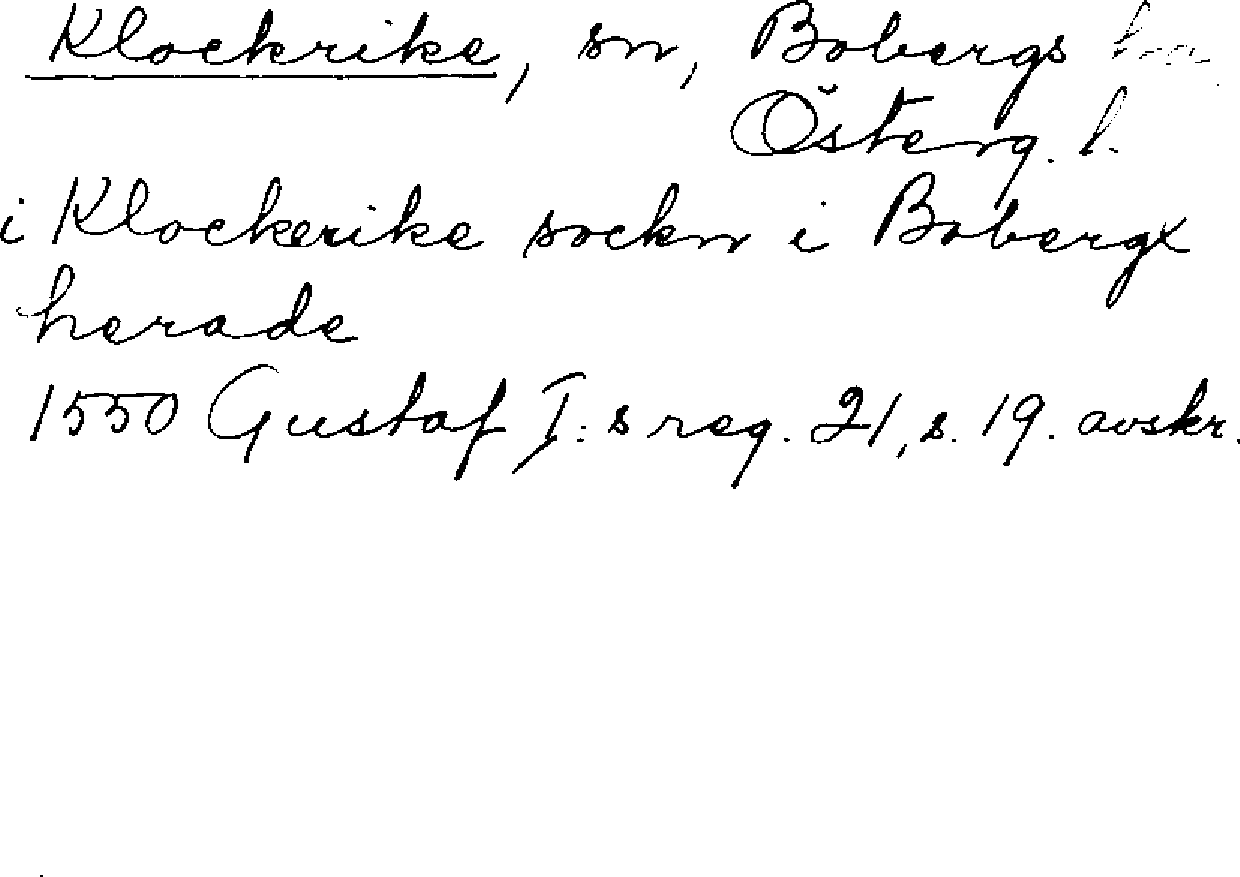 Klockrike, sn, Bobergs
Österg. l.
i Klockerike sockn i Bobergx
herade
1550 Gustaf I:s reg. 21, s. 19. avskr.